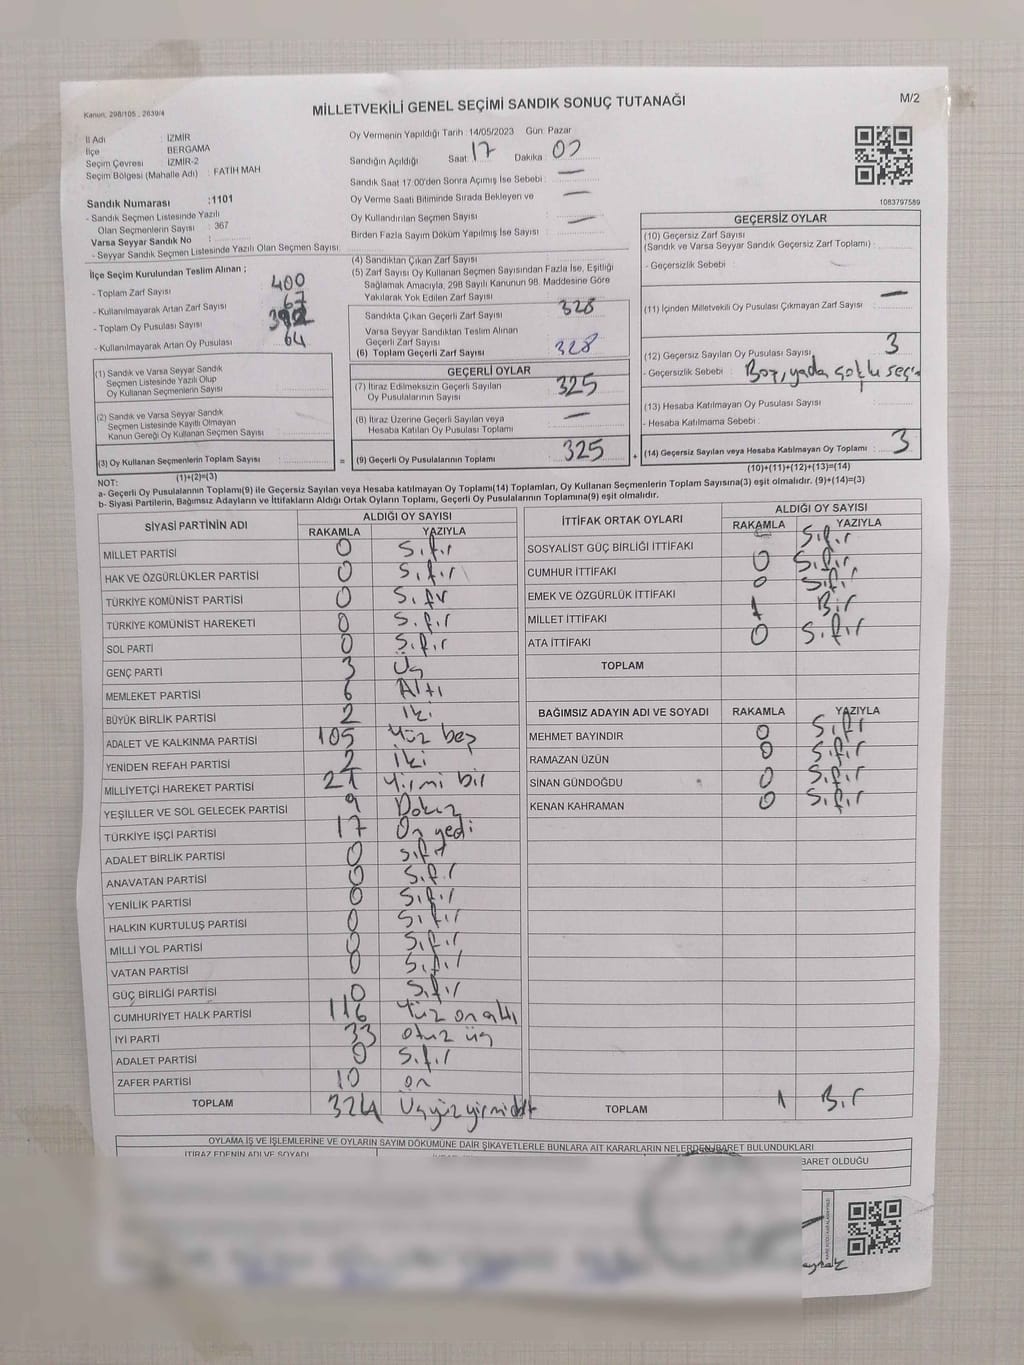 Kanun, 298/105 , 2839/4
MİLLETVEKİLİ GENEL SEÇİMİ SANDIK SONUÇ TUTANAĞI
M/2
İl Adı : İZMİR
İlçe : BERGAMA
Seçim Çevresi : İZMİR-2
Seçim Bölgesi (Mahalle Adı) : FATİH MAH
Sandık Numarası :1101
- Sandık Seçmen Listesinde Yazılı
Olan Seçmenlerin Sayısı : 367
Varsa Seyyar Sandık No :
- Seyyar Sandık Seçmen Listesinde Yazılı Olan Seçmen Sayısı:
Oy Vermenin Yapıldığı Tarih :14/05/2023 Gün: Pazar
Sandığın Açıldığı Saat 17 Dakika :
Sandık Saat 17:00'den Sonra Açımış İse Sebebi : —
Oy Verme Saati Bitiminde Sırada Bekleyen ve
Oy Kullandırılan Seçmen Sayısı : —
Birden Fazla Sayım Döküm Yapılmış İse Sayısı : —
1083797589
İlçe Seçim Kurulundan Teslim Alınan ;
- Toplam Zarf Sayısı : 400
- Kullanılmayarak Artan Zarf Sayısı : 67
- Toplam Oy Pusulası Sayısı : 392
- Kullanılmayarak Artan Oy Pusulası : 64
(1) Sandık ve Varsa Seyyar Sandık
Seçmen Listesinde Yazılı Olup
Oy Kullanan Seçmenlerin Sayısı :
(2) Sandık ve Varsa Seyyar Sandık
Seçmen Listesinde Kayıtlı Olmayan
Kanun Gereği Oy Kullanan Seçmen Sayısı :
(3) Oy Kullanan Seçmenlerin Toplam Sayısı :
(1)+(2)=(3)
(4) Sandıktan Çıkan Zarf Sayısı :
(5) Zarf Sayısı Oy Kullanan Seçmen Sayısından Fazla İse, Eşitliği
Sağlamak Amacıyla, 298 Sayılı Kanunun 98. Maddesine Göre
Yakılarak Yok Edilen Zarf Sayısı :
Sandıkta Çıkan Geçerli Zarf Sayısı : 328
Varsa Seyyar Sandıktan Teslim Alınan
Geçerli Zarf Sayısı :
(6) Toplam Geçerli Zarf Sayısı : 328
GEÇERLİ OYLAR
(7) İtiraz Edilmeksizin Geçerli Sayılan
Oy Pusulalarının Sayısı : 325
(8) İtiraz Üzerine Geçerli Sayılan veya
Hesaba Katılan Oy Pusulası Toplamı : —
= (9) Geçerli Oy Pusulalarının Toplamı : 325 +
GEÇERSİZ OYLAR
(10) Geçersiz Zarf Sayısı
(Sandık ve Varsa Seyyar Sandık Geçersiz Zarf Toplamı) :
- Geçersizlik Sebebi :
(11) İçinden Milletvekili Oy Pusulası Çıkmayan Zarf Sayısı : —
(12) Geçersiz Sayılan Oy Pusulası Sayısı : 3
- Geçersizlik Sebebi : Boş, yada çoklu
(13) Hesaba Katılmayan Oy Pusulası Sayısı :
- Hesaba Katılmama Sebebi :
(14) Geçersiz Sayılan veya Hesaba Katılmayan Oy Toplamı : 3
(10)+(11)+(12)+(13)=(14)
NOT:
a- Geçerli Oy Pusulalarının Toplamı(9) ile Geçersiz Sayılan veya Hesaba katılmayan Oy Toplamı(14) Toplamları, Oy Kullanan Seçmenlerin Toplam Sayısına(3) eşit olmalıdır. (9)+(14)=(3)
b- Siyasi Partilerin, Bağımsız Adayların ve İttifakların Aldığı Ortak Oyların Toplamı, Geçerli Oy Pusulalarının Toplamına(9) eşit olmalıdır.
SİYASİ PARTİNİN ADI ALDIĞI OY SAYISI
RAKAMLA YAZIYLA
MİLLET PARTİSİ 0 Sıfır
HAK VE ÖZGÜRLÜKLER PARTİSİ 0 Sıfır
TÜRKİYE KOMÜNİST PARTİSİ 0 Sıfır
TÜRKİYE KOMÜNİST HAREKETİ 0 Sıfır
SOL PARTİ 0 Sıfır
GENÇ PARTİ 3 Üç
MEMLEKET PARTİSİ 6 Altı
BÜYÜK BİRLİK PARTİSİ 2 İki
ADALET VE KALKINMA PARTİSİ 105 Yüz beş
YENİDEN REFAH PARTİSİ 2 İki
MİLLİYETÇİ HAREKET PARTİSİ 21 Yirmi bir
YEŞİLLER VE SOL GELECEK PARTİSİ 9 Dokuz
TÜRKİYE İŞÇİ PARTİSİ 17 On yedi
ADALET BİRLİK PARTİSİ 0 sıfır
ANAVATAN PARTİSİ 0 Sıfır
YENİLİK PARTİSİ 0 Sıfır
HALKIN KURTULUŞ PARTİSİ 0 Sıfır
MİLLİ YOL PARTİSİ 0 Sıfır
VATAN PARTİSİ 0 Sıfır
GÜÇ BİRLİĞİ PARTİSİ 0 Sıfır
CUMHURİYET HALK PARTİSİ 116 Yüz on altı
İYİ PARTİ 33 otuz üç
ADALET PARTİSİ 0 Sıfır
ZAFER PARTİSİ 10 on
TOPLAM 324 Üçyüzyirmidört
İTTİFAK ORTAK OYLARI ALDIĞI OY SAYISI
RAKAMLA YAZIYLA
SOSYALİST GÜÇ BİRLİĞİ İTTİFAKI Sıfır
CUMHUR İTTİFAKI 0 Sıfır
EMEK VE ÖZGÜRLÜK İTTİFAKI 0 Sıfır
MİLLET İTTİFAKI 1 Bir
ATA İTTİFAKI 0 Sıfır
TOPLAM
BAĞIMSIZ ADAYIN ADI VE SOYADI RAKAMLA YAZIYLA
MEHMET BAYINDIR 0 Sıfır
RAMAZAN ÜZÜN 0 Sıfır
SİNAN GÜNDOĞDU 0 Sıfır
KENAN KAHRAMAN 0 Sıfır
TOPLAM 1 Bir
OYLAMA İŞ VE İŞLEMLERİNE VE OYLARIN SAYIM DÖKÜMÜNE DAİR ŞİKAYETLERLE BUNLARA AİT KARARLARIN NELERDEN İBARET BULUNDUKLARI
İTİRAZ EDENİN ADI VE SOYADI
BARET OLDUĞU